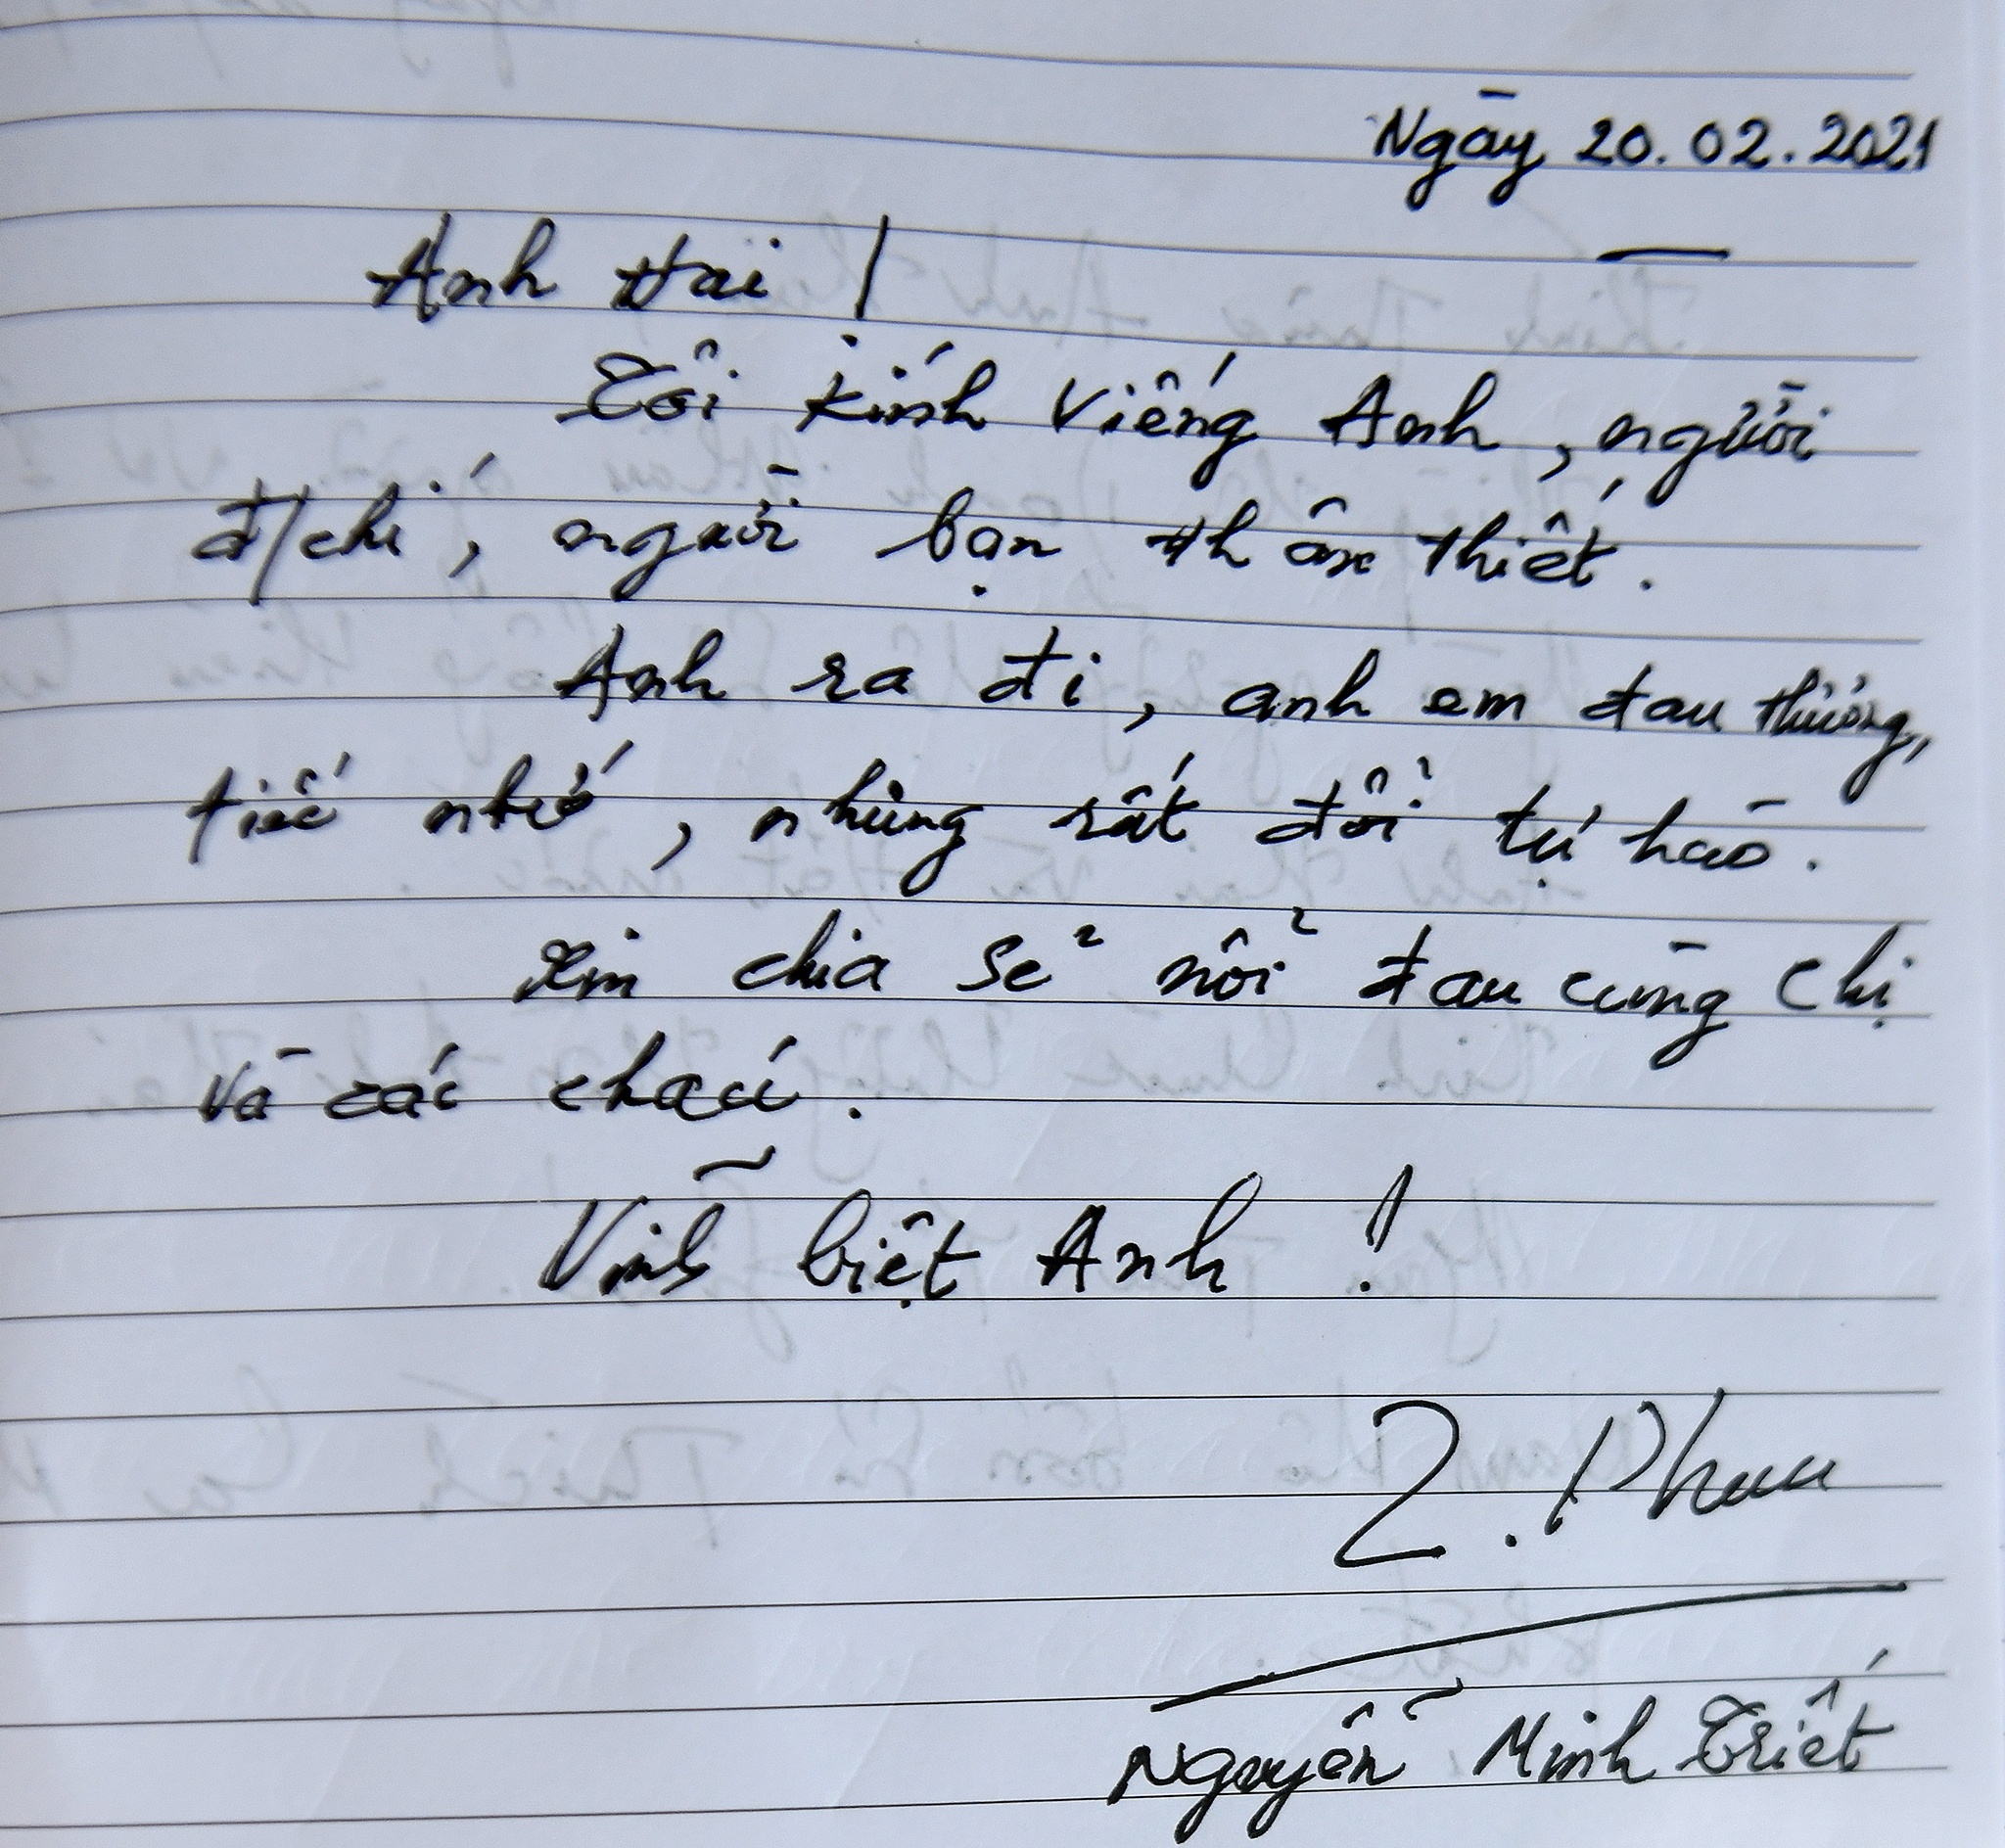 Ngày 20.02.2021
Anh Hai !
Tôi kính viếng Anh, người
đ/chí, người bạn thân thiết.
Anh ra đi, anh em đau thương,
tiếc nhớ, nhưng rất đỗi tự hào.
Xin chia sẻ nỗi đau cùng chị
và các cháu.
Vĩnh biệt Anh !
Nguyễn Minh Triết